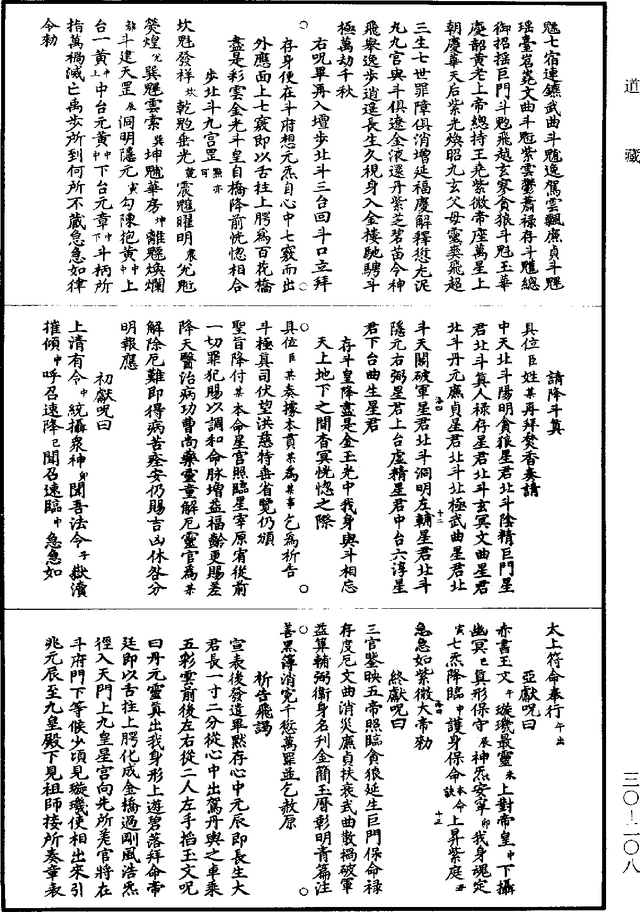 道藏
魁七宿連鑣武曲斗魓逸駕雲飄廉貞斗魒
瑶臺岧嶤文曲斗魁紫雲鬱蕭禄存斗魓總
御招搖巨門斗魁飛越玄寮貪狼斗魁玉華
慶韶黄老上帝總持王老紫微帝座萬星上
朝慶華天后紫光煥昭九玄父母靈爽飛超
三生七世罪障俱消增延福慶解釋愆尤泥
九九宫與斗俱遼金液還丹紫芝碧苗令神
飛舉逸步逍遥長生久視身入金樓馳騁斗
極萬劫千秋
右呪畢再入壇步北斗三台回斗口立拜
存身便在斗府想元炁自心中七竅而出
外應面上七竅即以舌拄上腭爲百花橋
盡是彩雲金光斗皇自橋降前恍惚相合
步北斗九宫罡
坎魁發祥坎乾魁垂光乾震魓曜明震兊魁
熒煌兊巽魒雲索巽坤魓華房坤離魒煥爛
離斗建天罡艮洞明隱元寅勾陳抱黄中上
台一黄上中台元黄中下台元章下斗柄所
指萬禍滅亡萬步所到何所不藏急急如律
令勑
請降斗真
具位臣姓某再拜焚香奏請
中天北斗陽明貪狼星君北斗陰精巨門星
君北斗真人禄存星君北斗玄冥文曲星君
北斗丹元廉貞星君北斗北極武曲星君北
斗天關破軍星君北斗洞明左輔星君北斗
隱元右弼星君上台虚精星君中台六淳星
君下台曲生星君
存斗皇降盡是金玉光中我身與斗相忘
天上地下之間杳冥恍惚之際
具位臣某奏據本貫某爲某事乞爲祈告
斗極真司伏望洪慈特垂省覽仍頒
聖旨降付某本命星官照臨星宰原宥從前
一切罪犯賜以調和命脉增益福齡更賜差
降天醫治病功曹尚藥靈童解厄靈官爲某
解除厄難即得病苦痊安仍賜吉凶休咎分
明報應
初獻呪曰
上清有令中統攝衆神卯聞吾法令子嶽瀆
摧傾中呼召速降巳聞召速臨中急急如
太上符命奉行午出
亞獻呪曰
赤書玉文午璇璣最靈未上對帝皇中下攝
幽冥巳真形保守辰神炁安寧卯我身魂定
寅七炁降臨中護身保命本命訣上昇紫庭丑
急急如紫微大帝勑
終獻呪曰
三官鑒映五帝照臨貪狼延生巨門保命禄
存度厄文曲消災廉貞扶衰武曲散禍破軍
益算輔弼衛身名刋金簡玉曆彰明青篇注
善黑簿消寃千愆萬罪並乞赦原
祈告飛謁
宣表後發遣畢默存心中元辰即長生大
君長一寸二分從心中出駕丹輿之車乘
五彩雲前後左右從二人左手搯玉文呪
曰丹元靈真出我身形上遊碧落拜命帝
廷即以舌拄上腭化成金橋過剛風浩炁
徑入天門上九皇星宫向先所差官將在
斗府門下等候少頃見璇璣使相出來引
兆元辰至九皇殿下見祖師接所奏章表
三〇—二〇八